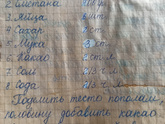 2 Сметана
3 Яйца шт.
4 Сахар ст.
5 Мука 3 ст.
6 Какао ст. л.
7 Соль 1/3 ч. л.
8 Сода 1/3 ч. л.
Поделить тесто пополам,
половину добавить какао.